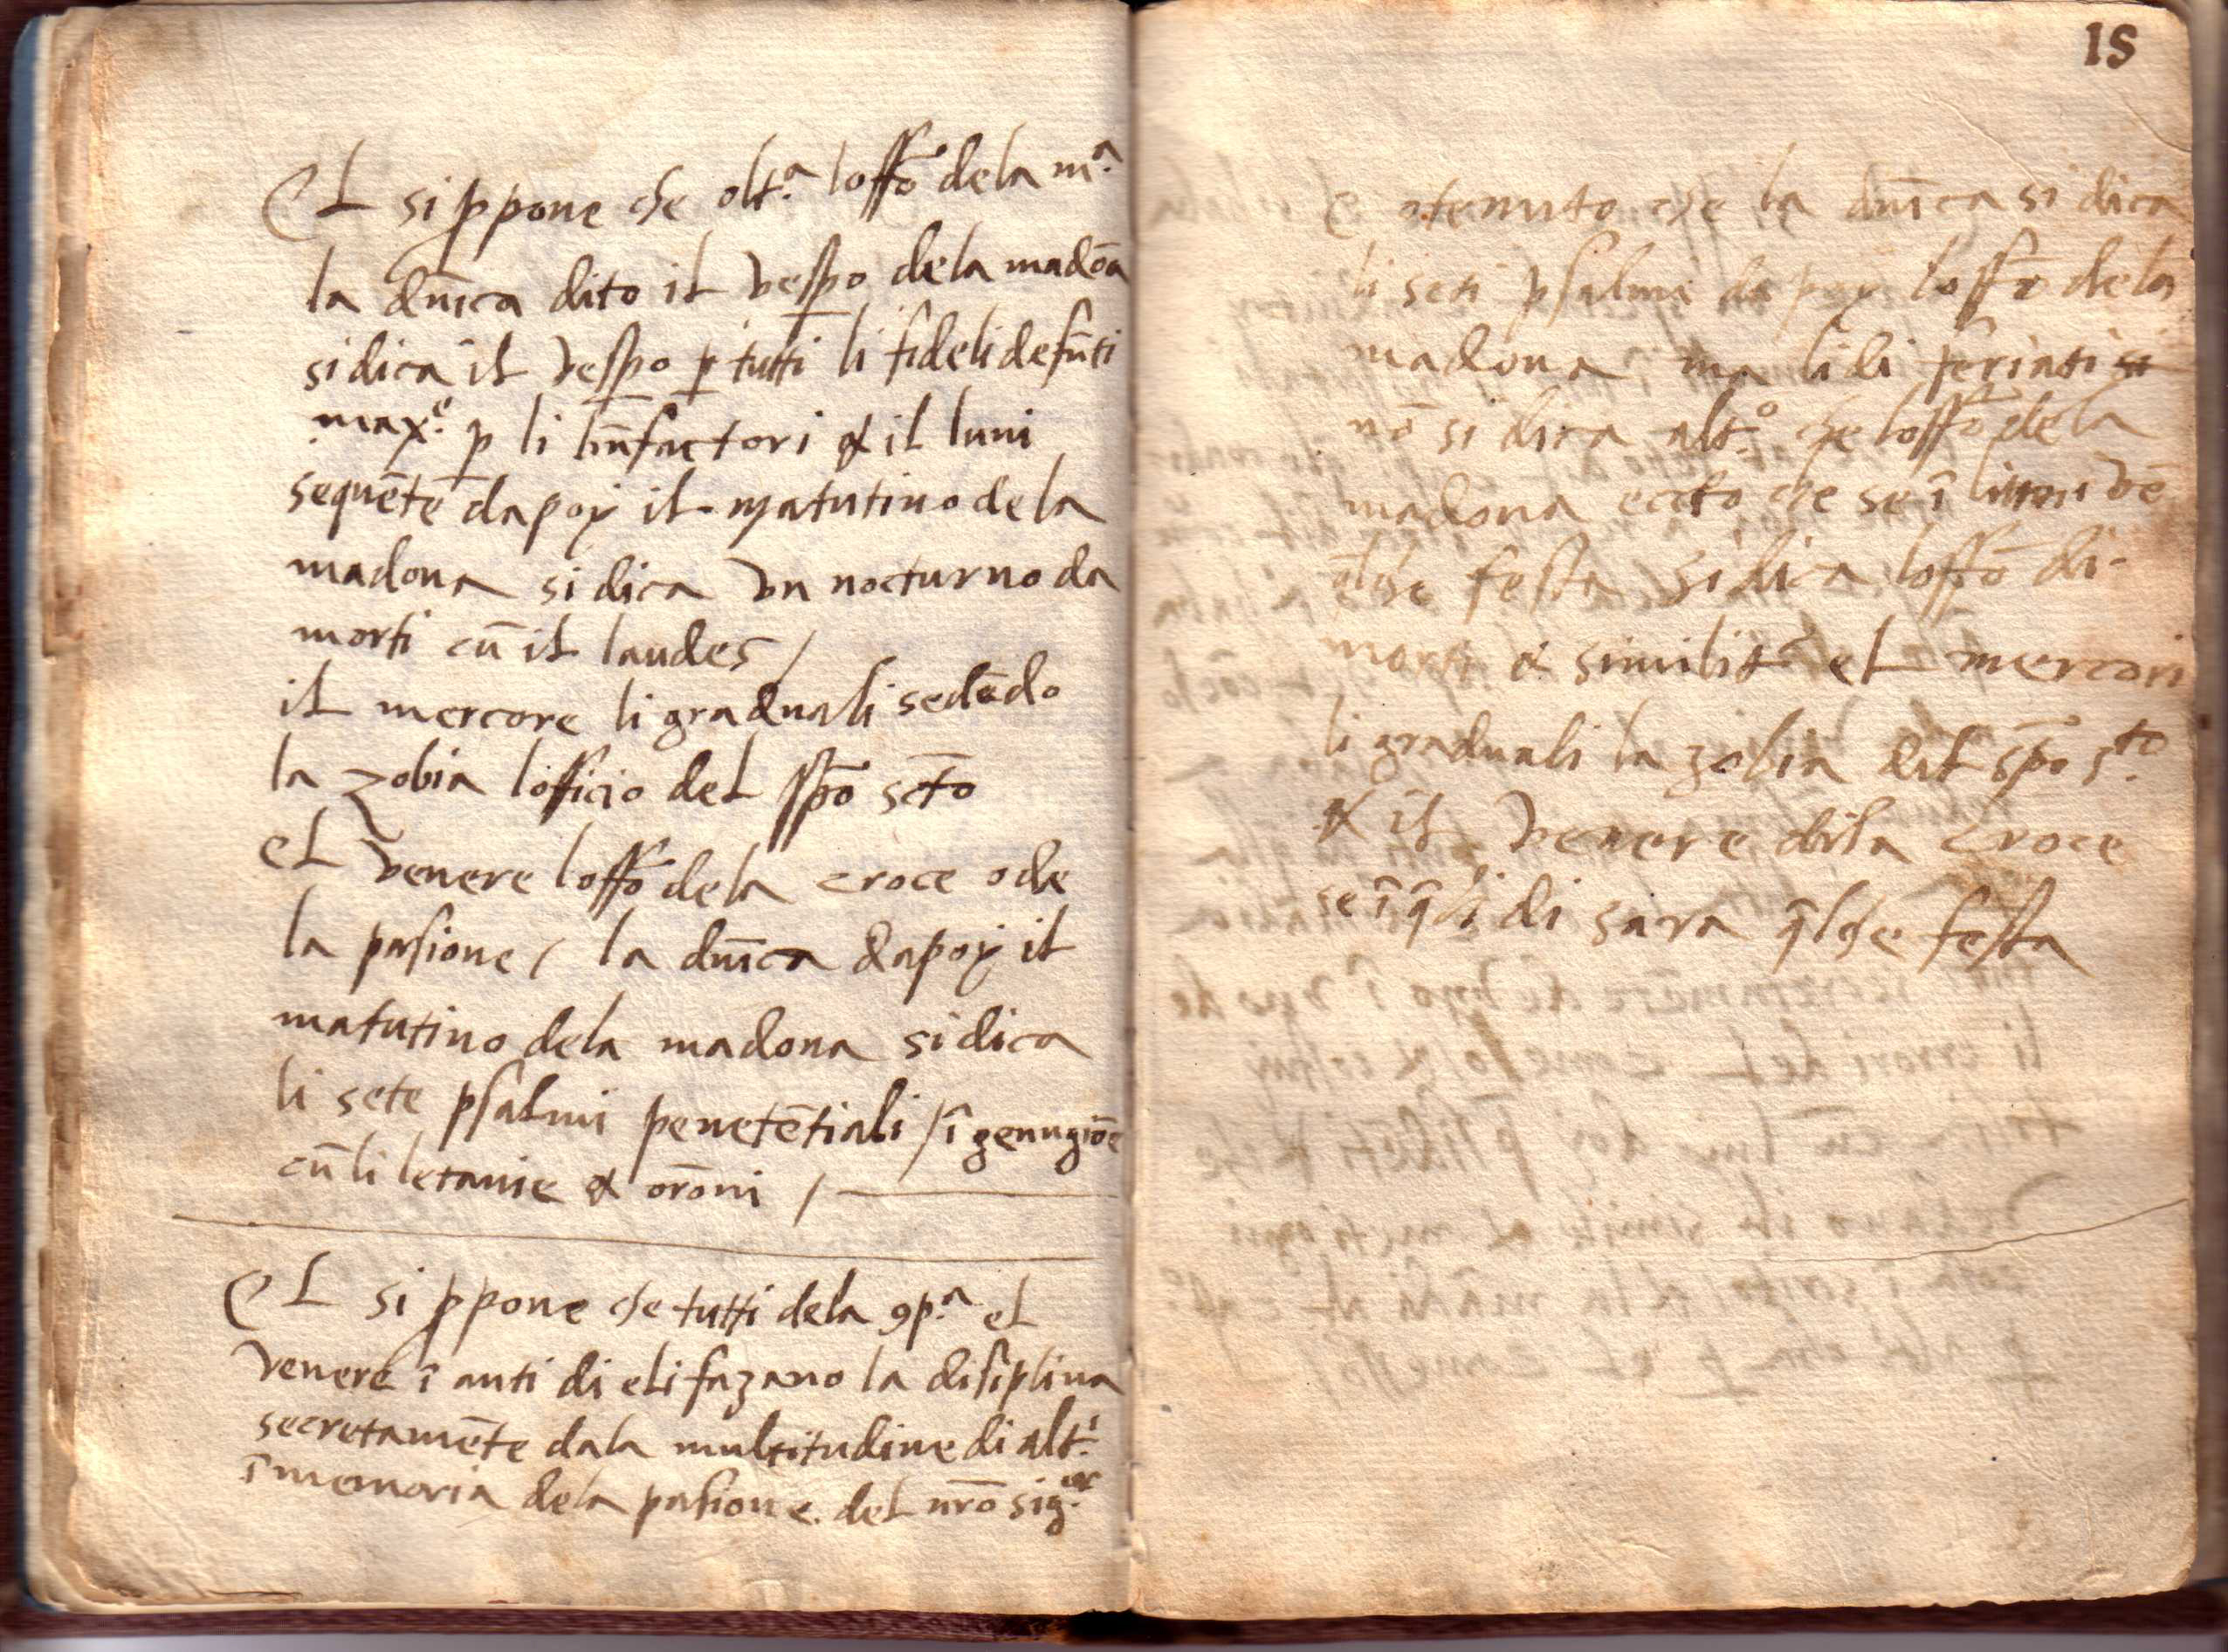 El si ppone che olt.ª loffō dela m.ª
la dnīca dito il vespo dela madōa
si dica il vespo p tutti li fideli defūti
max.e p li bn̄factori & il luni
sequēte dapoy il matutino dela
madona si dica vn nocturno da
morti cū il laudes /
il mercore li graduali sedēdo
la zobia lofficio del spō sctō
el venere loffō dela croce o de
la pasione / la dnīca dapoy il
matutino dela madona si dica
li sete psalmi penetētiali / ī genugiōe
cū li letanie & orōni /
El si ppone che tutti dela 9p.ª el
venere ī anti di eli fazano la disiplina
secretamēte dala multitudine di alt.i
ī memoria dela pasione del nrō sig.or
15
E otenuto che la dnīca si dica
li seti psalmi da poy loffō dela
madona ma li di feriati si
nō si dica alt.o che loffō dela
madona eccto che se ī luni vē
q̄lche festa si dica loffō di
morti & similit.e el mercori
li graduali la zobia del spō s.to
& il venere dela croce
se ī q̄li di sara q̄lche festa